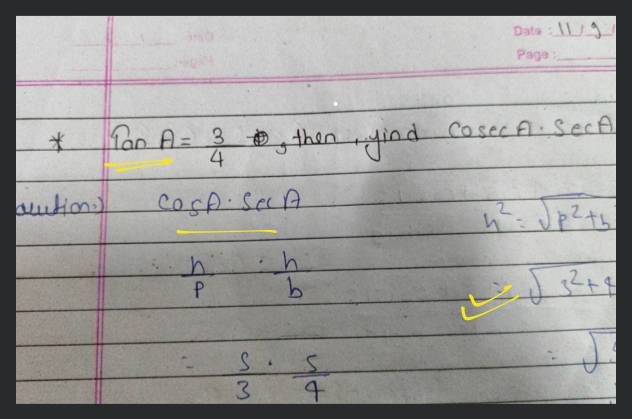 Date : 11/9/
Page :
* Tan A = 3/4 , then , find cosec A · Sec A
olution:) CosA · Sec A
h² = √p² + b
∴ h/p · h/b
= √3² + 4
= 5/3 · 5/4
= √